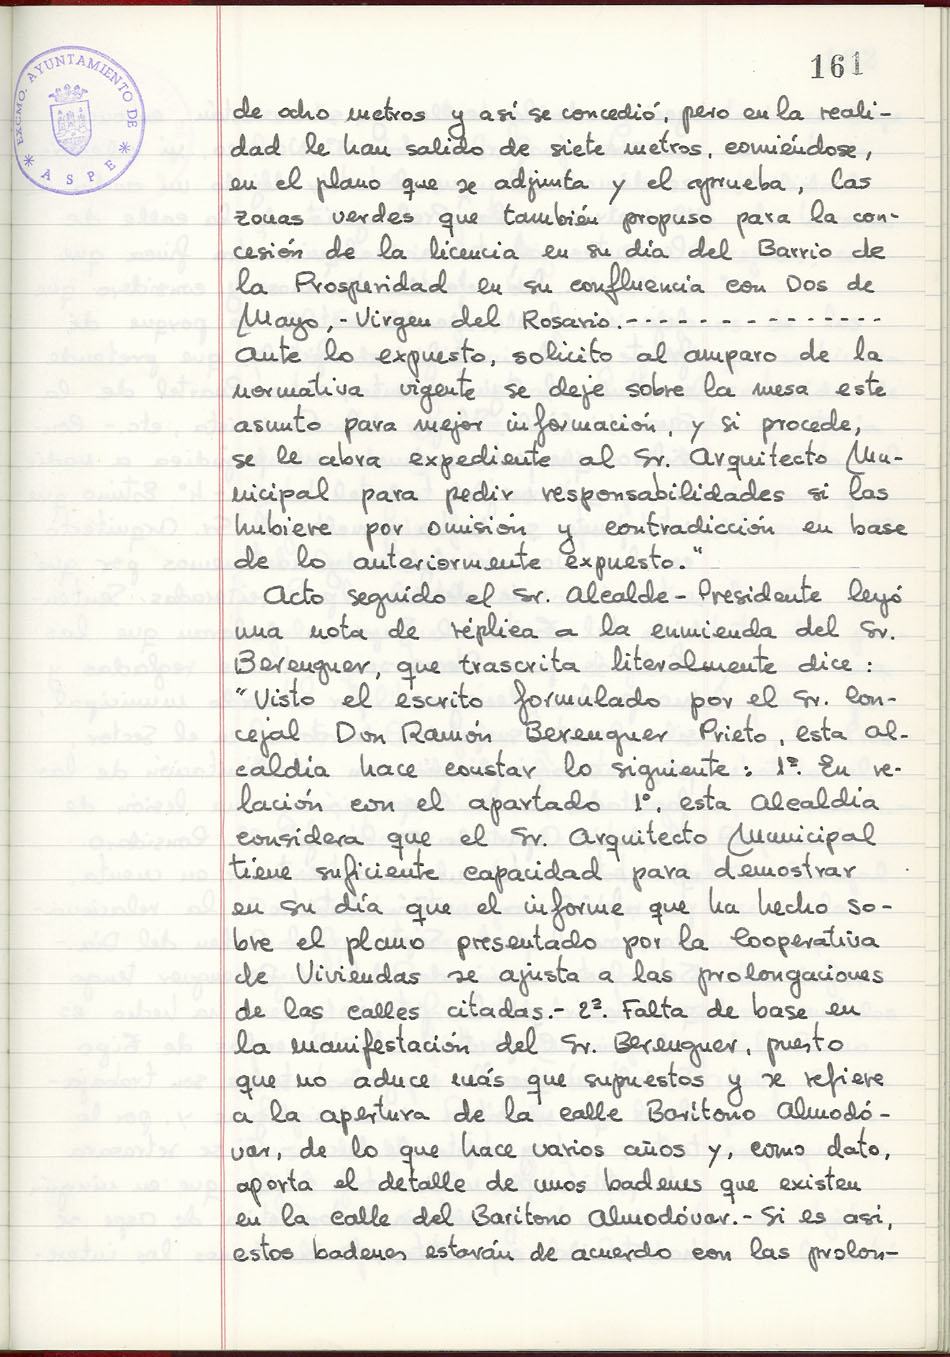 161
EXCMO. AYUNTAMIENTO DE
* ASPE *
de ocho metros y así se concedió, pero en la reali-
dad le han salido de siete metros, comiéndose,
en el plano que se adjunta y el aprueba, las
zonas verdes que también propuso para la con-
cesión de la licencia en su día del Barrio de
la Prosperidad en su confluencia con Dos de
Mayo,- Virgen del Rosario.- - - - - - - - - - - - - - -
Ante lo expuesto, solicito al amparo de la
normativa vigente se deje sobre la mesa este
asunto para mejor información, y si procede,
se le abra expediente al Sr. Arquitecto Mu-
nicipal para pedir responsabilidades si las
hubiere por omisión y contradicción en base
de lo anteriormente expuesto."
Acto seguido el Sr. Alcalde-Presidente leyó
una nota de réplica a la enmienda del Sr.
Berenguer, que trascrita literalmente dice:
"Visto el escrito formulado por el Sr. Con-
cejal Don Ramón Berenguer Prieto, esta Al-
caldía hace constar lo siguiente: 1º. En re-
lación con el apartado 1º, esta Alcaldía
considera que el Sr. Arquitecto Municipal
tiene suficiente capacidad para demostrar
en su día que el informe que ha hecho so-
bre el plano presentado por la Cooperativa
de Viviendas se ajusta a las prolongaciones
de las calles citadas.- 2º. Falta de base en
la manifestación del Sr. Berenguer, puesto
que no aduce más que supuestos y se refiere
a la apertura de la calle Barítono Almodó-
var, de lo que hace varios años y, como dato,
aporta el detalle de unos badenes que existen
en la calle del Barítono Almodóvar.- Si es así,
estos badenes estarán de acuerdo con las prolon-